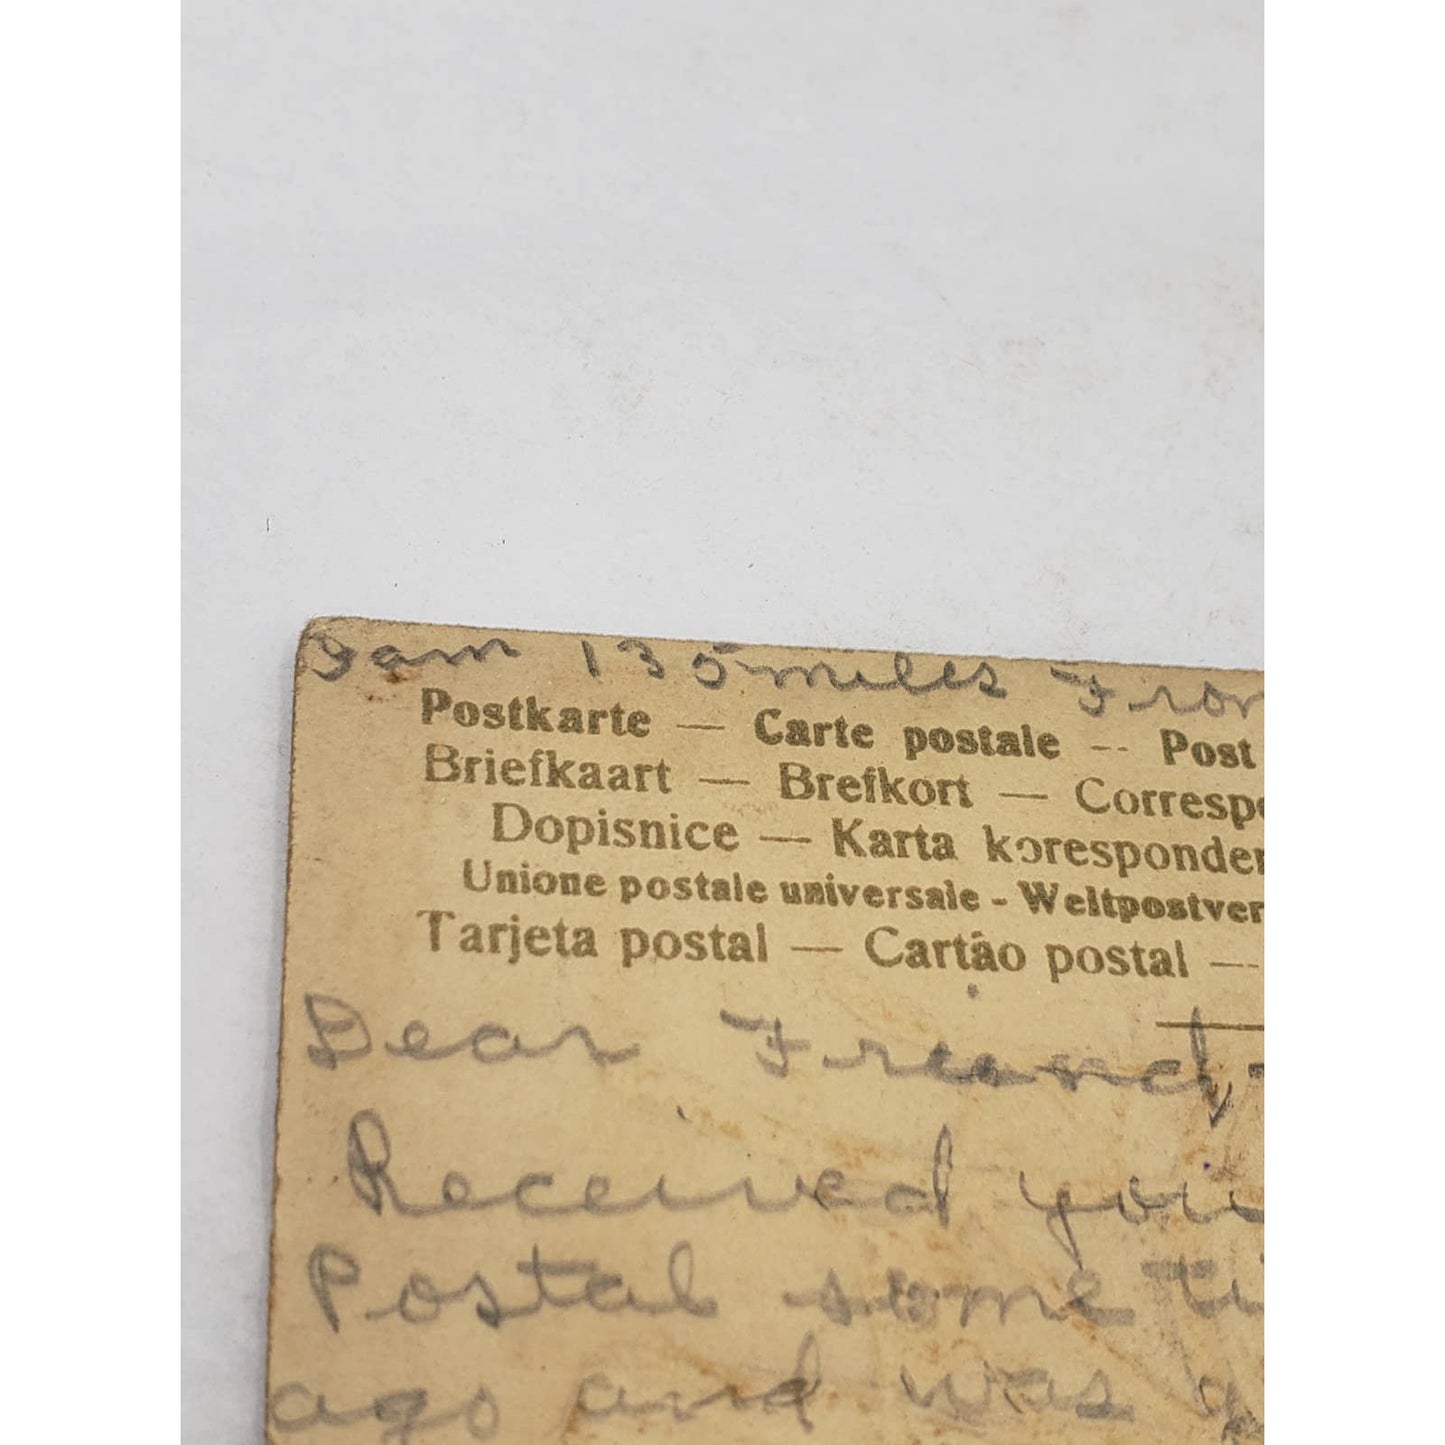 I am 135 miles From
Postkarte — Carte postale -- Post
Briefkaart — Brefkort — Corresp
Dopisnice — Karta koresponden
Unione postale universale - Weltpostver
Tarjeta postal — Cartão postal —
Dear Friend,
Received you
Postal some ti
ago and was g